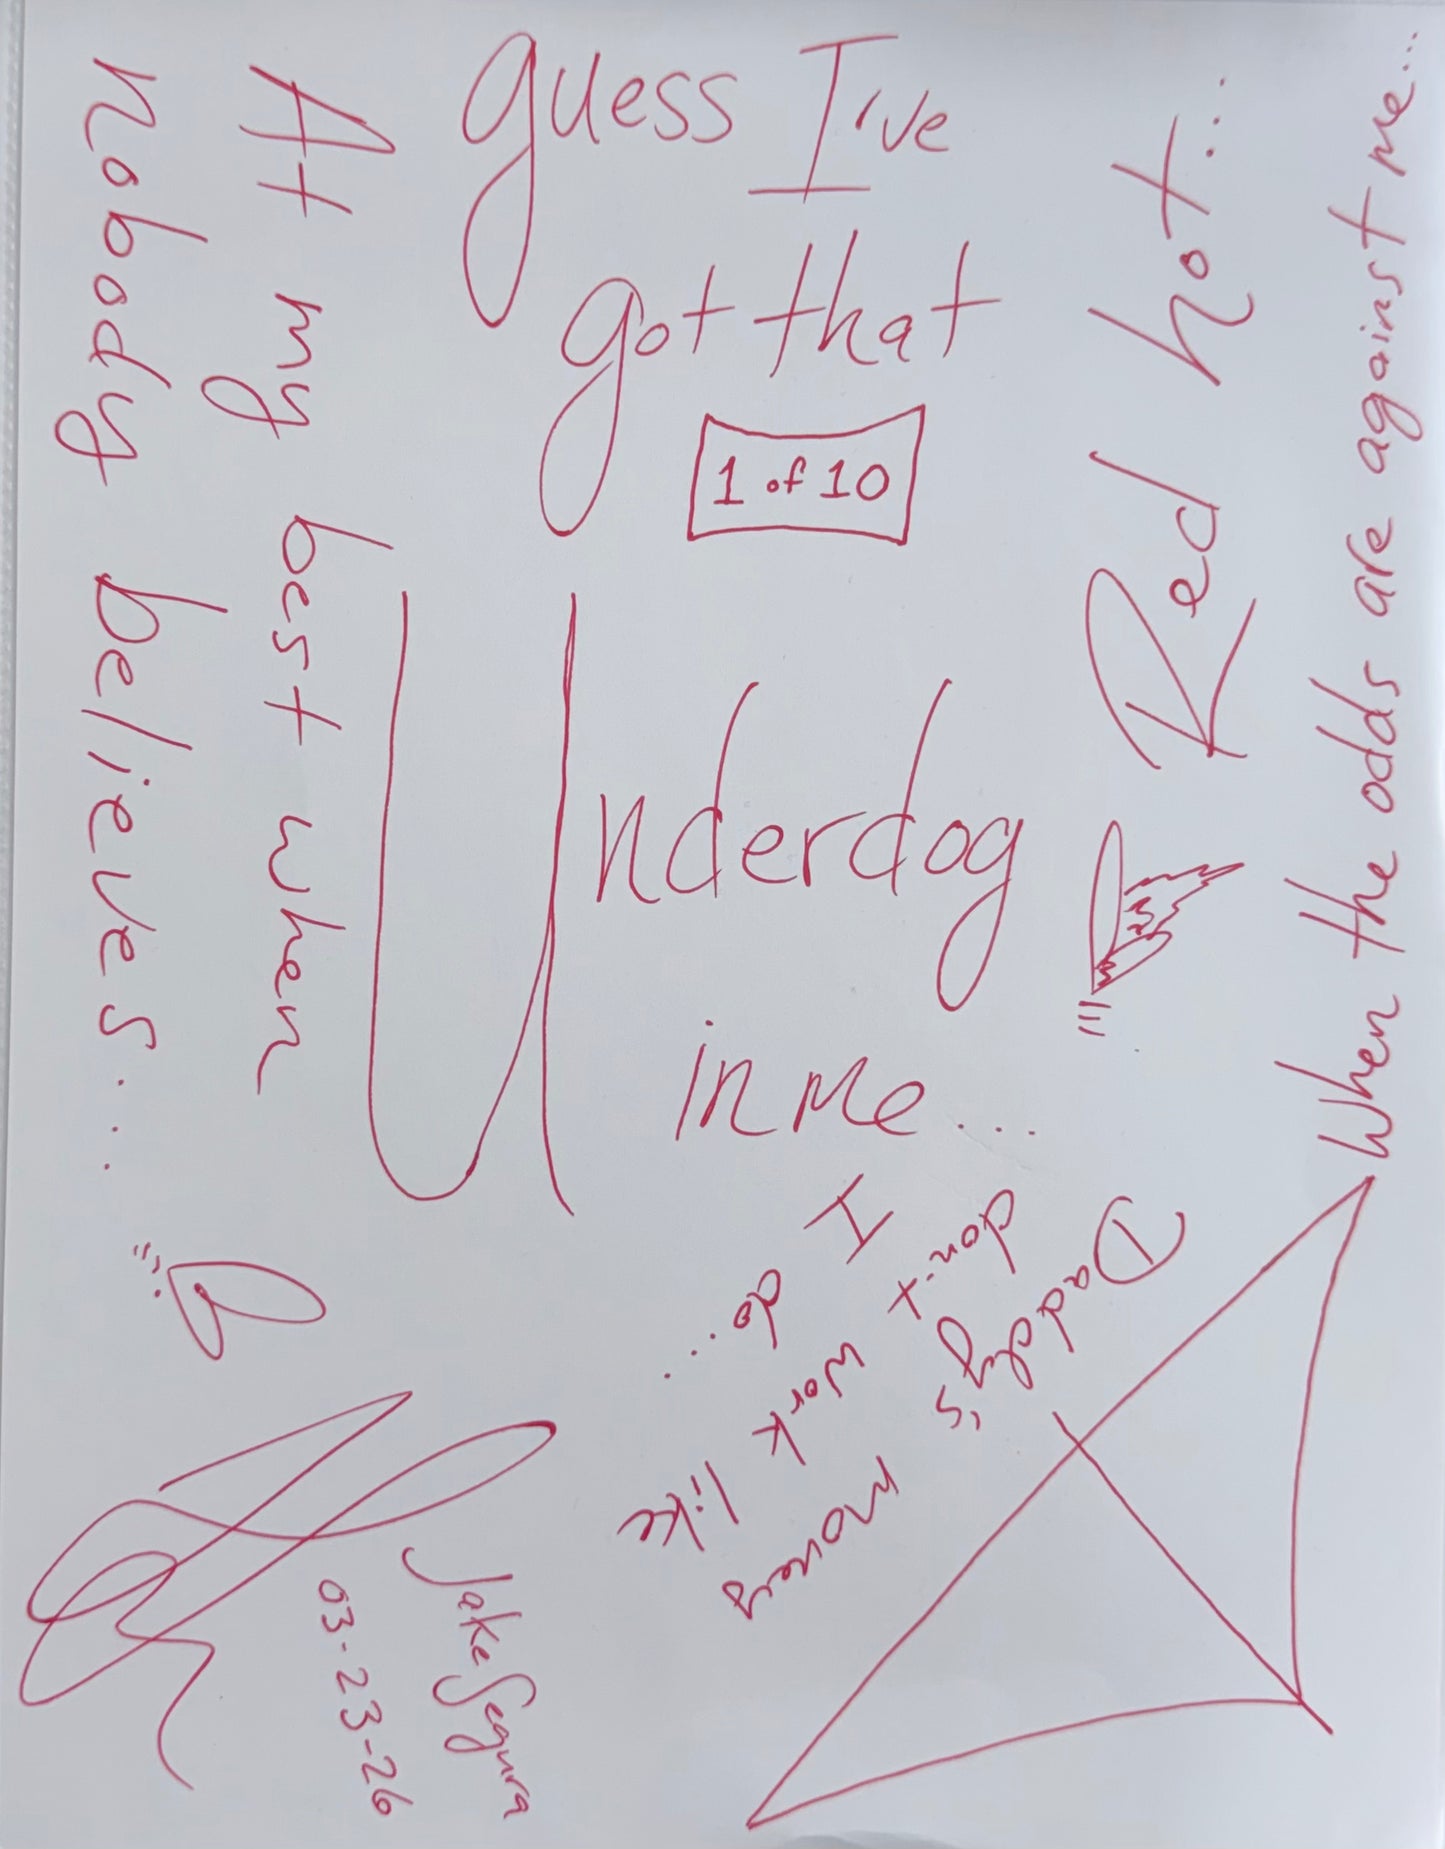 guess I've
got that
1 of 10
Underdog
in me...
Red hot...
When the odds are against me...
At my best when
nobody believes....
Daddy's money
don't work like
I do...
Jake Segura
03-23-26